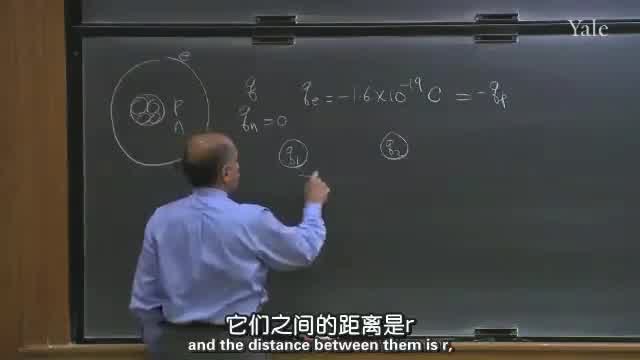 Yale
e
P
n
q
q_e = -1.6×10^-19 C = -q_p
q_n = 0
q_1
q_2
它们之间的距离是r
and the distance between them is r,